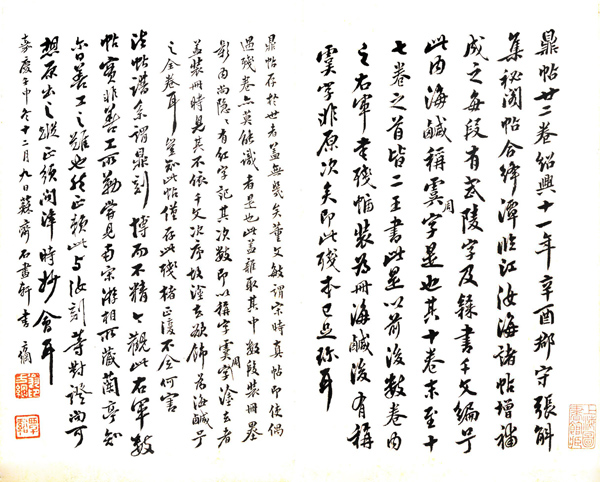 鼎帖廿二卷紹興十一年辛酉郡守張斛
集秘閣帖合絳潭臨江汝海諸帖增補
成之每段有武陵字及錄書千文編号
此内海鹹稱虞字是也其十卷末至十
周
七卷之首皆二王書此是以前後數卷内
之右軍書殘幅裝為冊海鹹後有稱
虞字非原次矣即此殘本已足珍耳
鼎帖存於世者蓋無幾矣董文敏謂宋時真帖即使偶
過殘卷亦莫能識者是也此蓋雜取其中數段裝冊墨
影内尚隱隱有紅字記其次數即以稱字虞字塗去者
周
蓋裝冊時見其不依千文次序故塗去欲飾為海鹹号
之全卷耳豈知此帖僅存此殘楮正復不全何害
法帖譜系謂鼎刻博而不精今觀此右軍數
帖實非善工所勒嘗見南宋游相所藏蘭亭知
當日善工之難也然正賴此与汝刻等對證尚可
想原出之蹤正須問津時抄會耳
嘉慶
冬十二月九日蘇齋石畫軒書